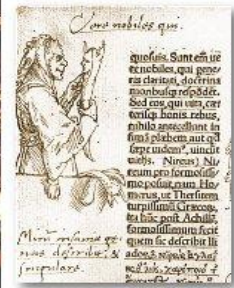 Vere nobiles qui.
quosuis. Sunt em̄ ue
re nobiles, qui gene
ris claritati, doctrina
moribusq; respōdēt.
Sed eos, qui uita, cæt
terisq; bonis rebus,
nihilo antecellunt in
fimā plæbem aut
sæpe uincūt
uitijs. Nireus) Ni/
reum pro formosissi/
mo posuit, nam Ho/
merus, ut Thersitem
turpissimū Græcor,
ita hūc post Achillē,
formosissimum fecit
quem sic describit Ili
Mirū insanie ge-
nus describit, &
singulare.